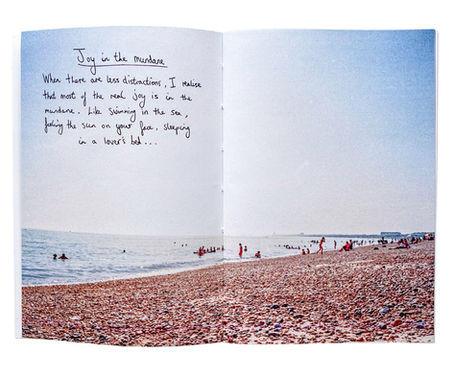 Joy in the mundane
When there are less distractions, I realise
that most of the real joy is in the
mundane. Like swimming in the sea,
feeling the sun on your face, sleeping
in a lover's bed...